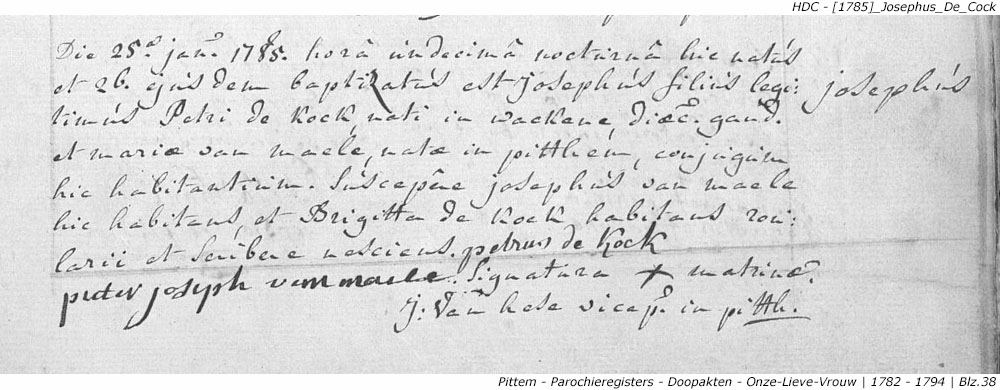 HDC - [1785]_Josephus_De_Cock
Die 25ª janȓ. 1785. horâ undecimâ nocturnâ hic natus
et 26. ejusdem baptizatus est josephus filius legi:
josephus
timus Petri de Kock, nati in wackene, diœc. gand.
et mariæ van maele, natæ in pitthem, conjugum
hic habitantium. Suscepêre josephus van maele
hic habitans, et Brigitta de Kock habitans rou:
larii et scribere nesciens. petrus de Kock
pieter joseph van maele. Signatura + matrinæ.
J: Van hese vicep. in pitth.
Pittem - Parochieregisters - Doopakten - Onze-Lieve-Vrouw | 1782 - 1794 | Blz.38